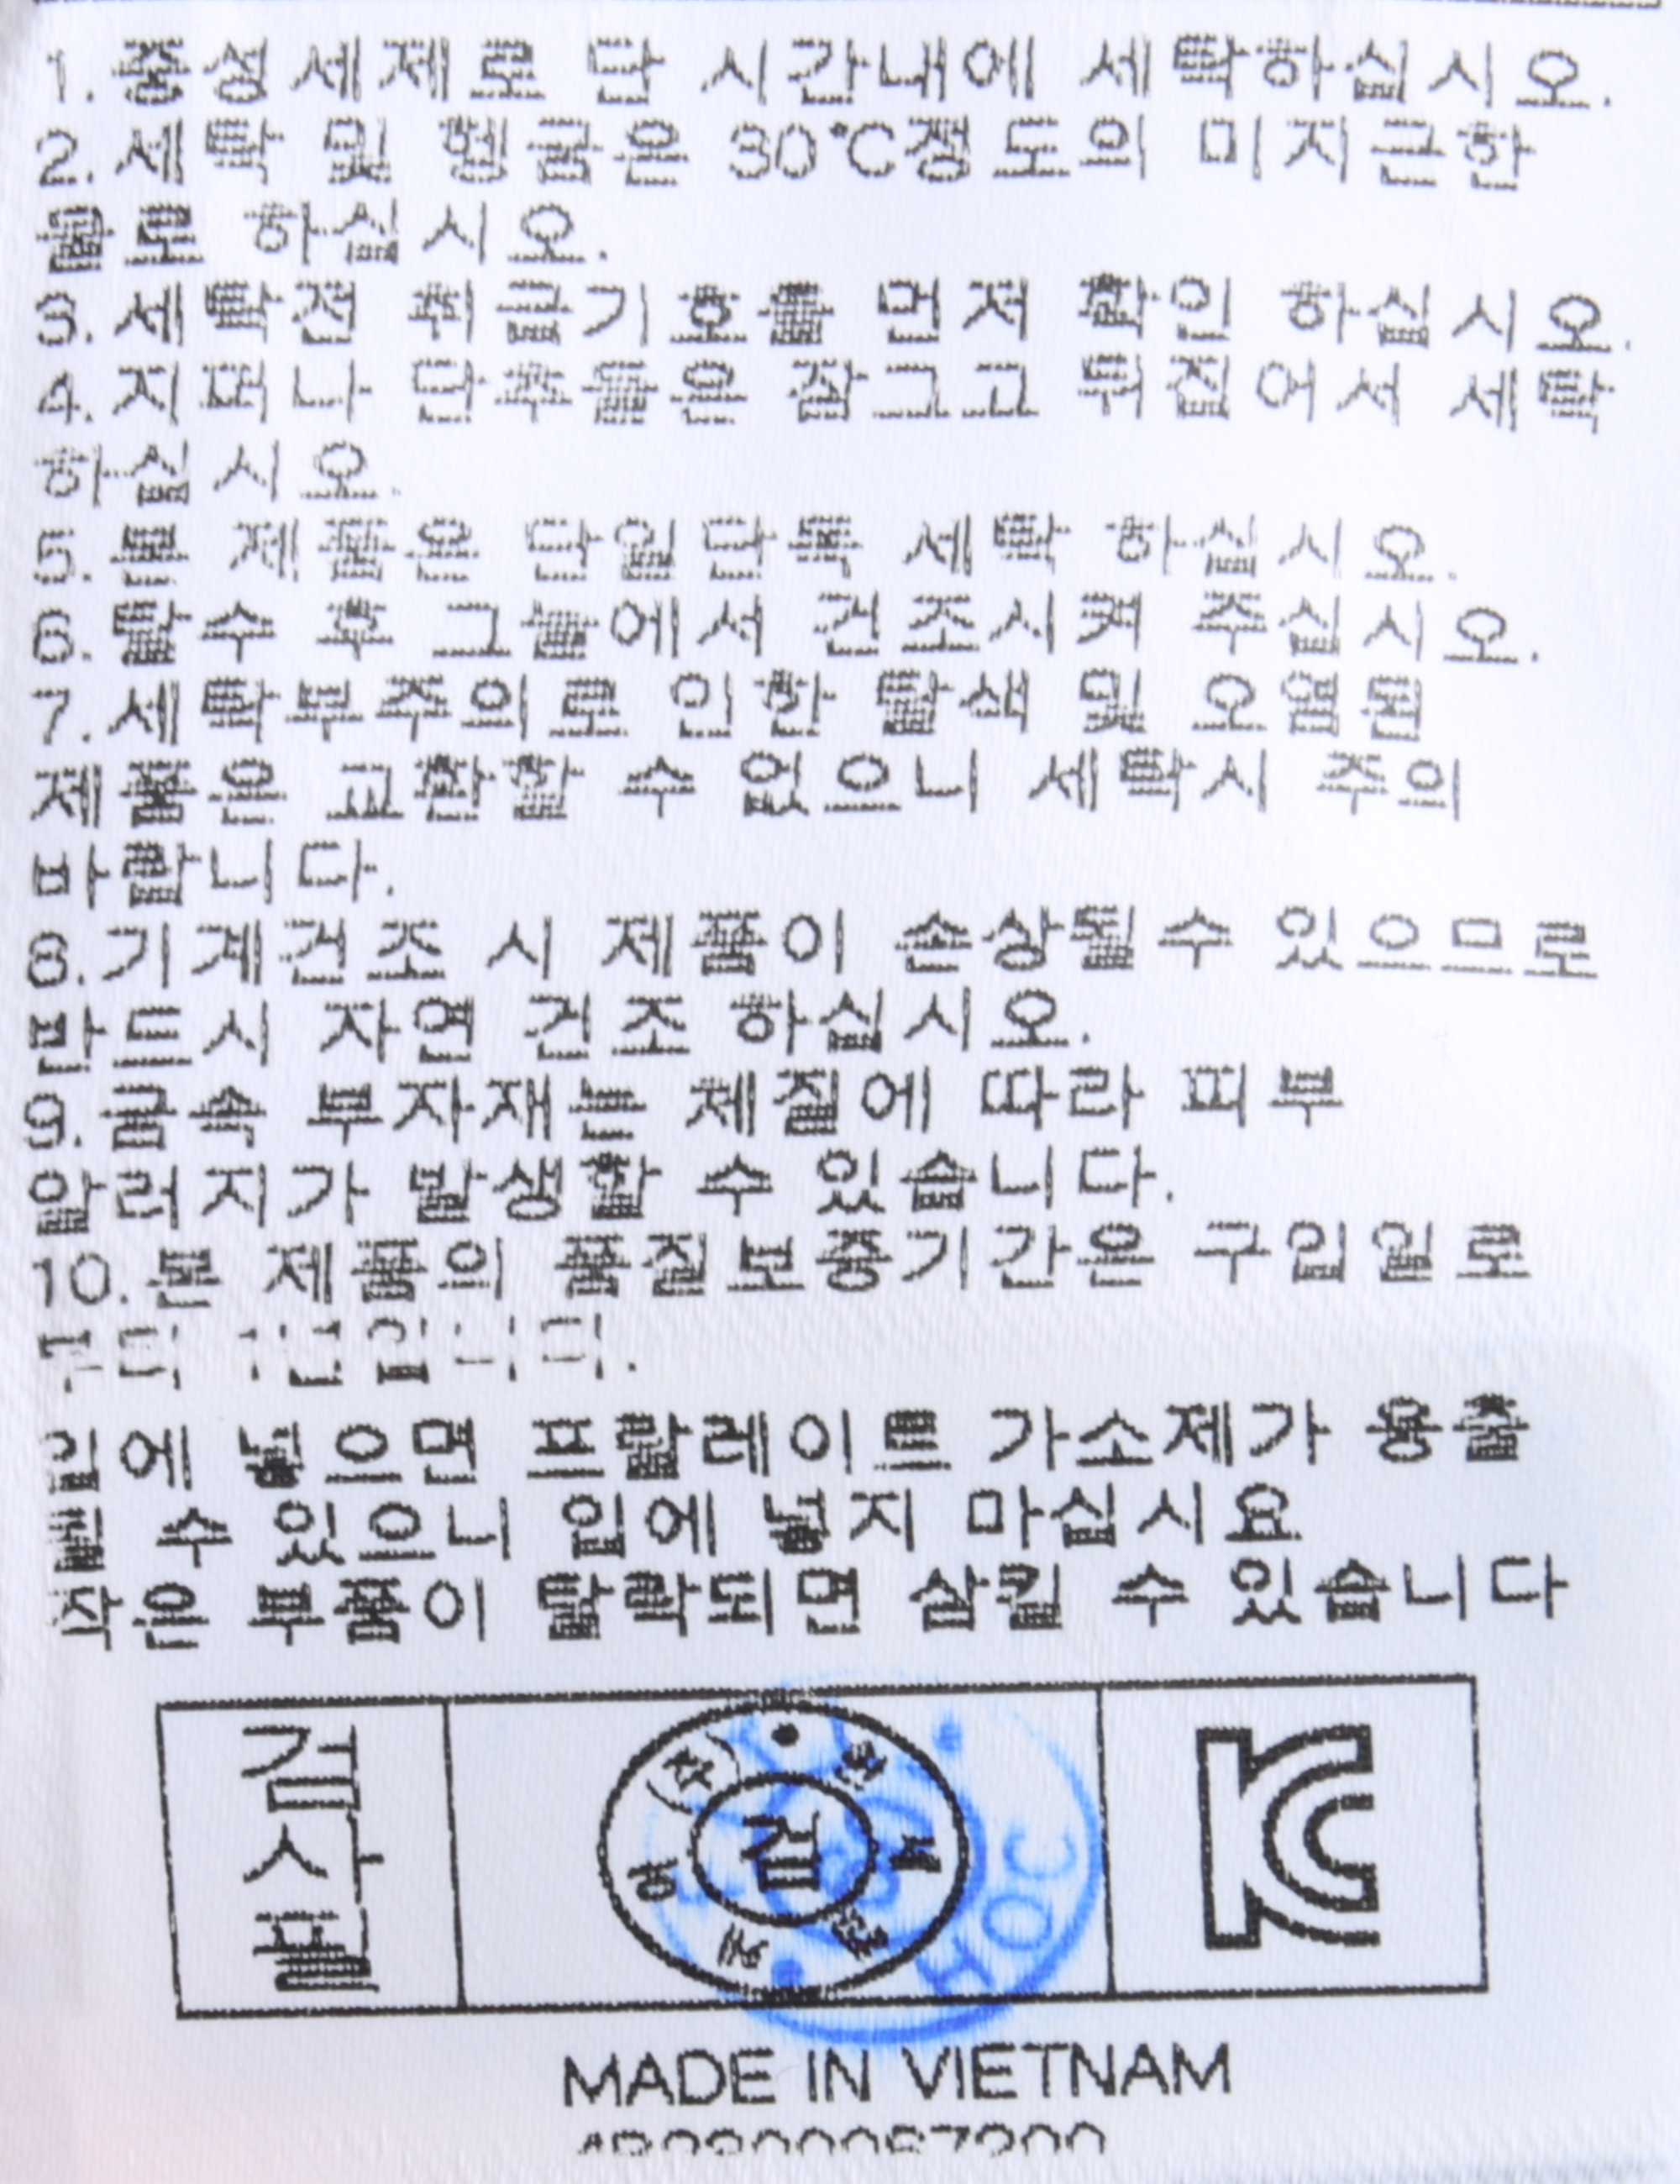 1. 중성세제로 단 시간내에 세탁하십시오.
2. 세탁 및 헹굼은 30℃정도의 미지근한
물로 하십시오.
3. 세탁전 취급기호를 먼저 확인 하십시오.
4. 지퍼나 단추들은 잠그고 뒤집어서 세탁
하십시오.
5. 본 제품은 단일단독 세탁 하십시오.
6. 탈수 후 그늘에서 건조시켜 주십시오.
7. 세탁부주의로 인한 탈색 및 오염된
제품은 교환할 수 없으니 세탁시 주의
바랍니다.
8. 기계건조 시 제품이 손상될수 있으므로
반드시 자연 건조 하십시오.
9. 금속 부자재는 체질에 따라 피부
알러지가 발생할 수 있습니다.
10. 본 제품의 품질보증기간은 구입일로
부터 1년입니다.
입에 넣으면 프탈레이트 가소제가 용출
될 수 있으니 입에 넣지 마십시요
작은 부품이 탈락되면 삼킬 수 있습니다
검사필
검
HOC
KC
MADE IN VIETNAM